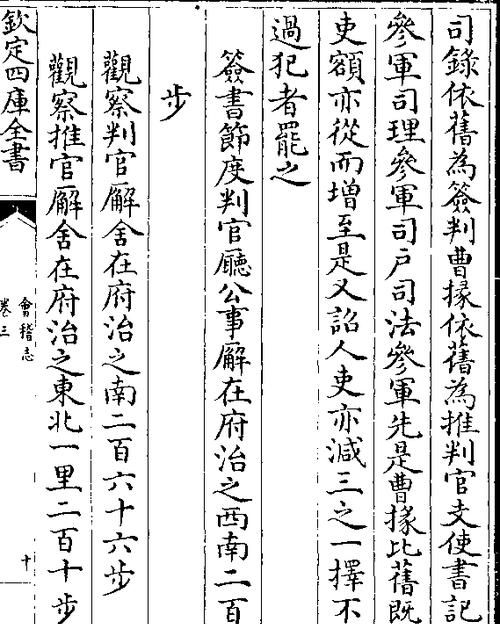 司錄依舊為簽判曹掾依舊為推判官支使書記
參軍司理參軍司戶司法參軍先是曹掾比舊既
吏額亦從而增至是又詔人吏亦減三之一擇不
過犯者罷之
簽書節度判官廳公事廨在府治之西南二百
步
觀察判官廨舍在府治之南二百六十六步
觀察推官廨舍在府治之東北一里二百十步
欽定四庫全書
會稽志
卷三
十